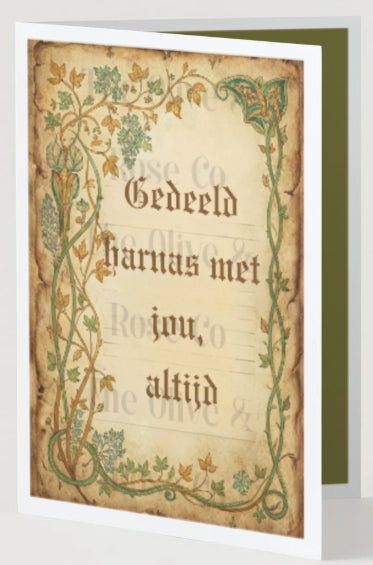 Rose Co
Gedeeld
The Olive &
harnas met
Rose Co
jou,
altijd
The Olive &